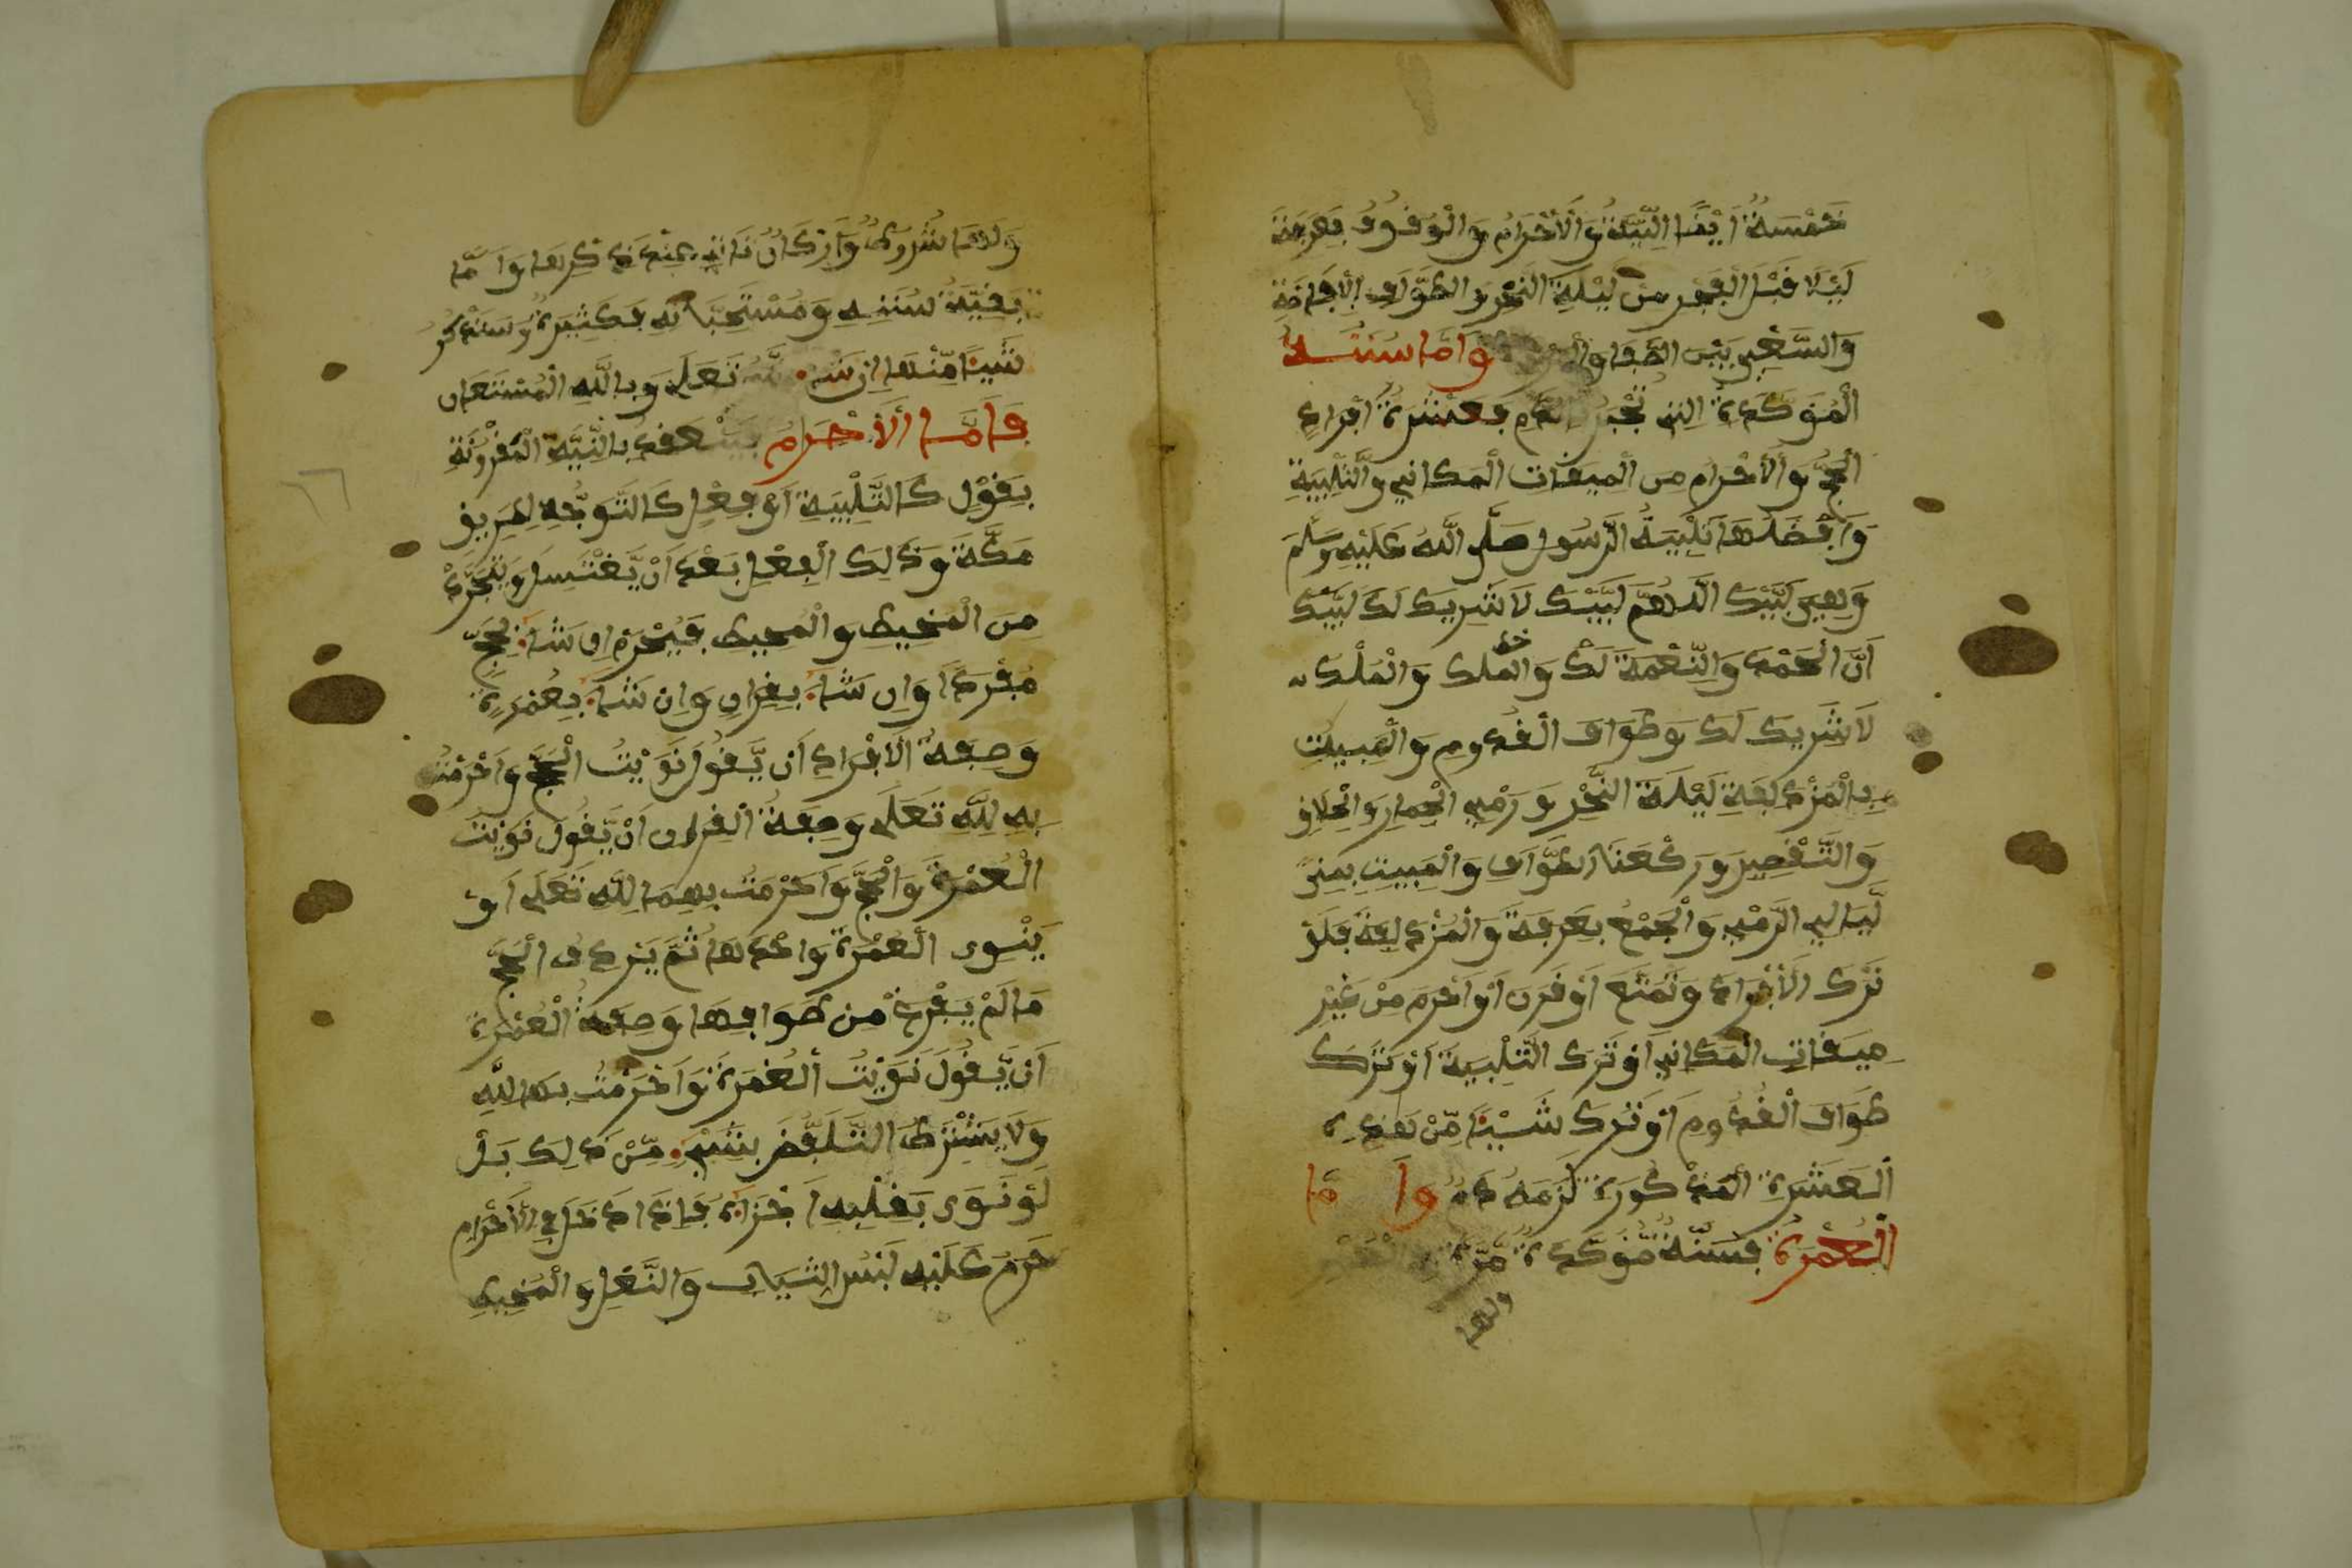 خَمْسَةٌ اَيْضًا النِّيَّةُ وَالْاَحْرَامُ وَالْوُفُوڢُ بِعَرَڢَةَ
لَيْلًا فَبْلَ الْڢَجْرِ مِنْ لَيْلَةِ النَّحْرِ وَالطَّوَافِ الِاڢَاضَةِ
وَالسَّعْيِ بَيْنَ الصَّڢَا وَالْ وَاَمَّا سُنَنُهُ
الْمُوَكَّدَةُ الَّتِي تُجْبَرُ بِالدَّمِ ڢَعَشَرَةٌ اِڢْرَادُ
الْحَجِّ وَالْاِحْرَامُ مِنَ الْمِيفَاتِ الْمَكَانِي وَالتَّلْبِيَةِ
وَاَڢْضَلُهَا تَلْبِيَةُ الرَّسُولِ صَلَّى اللَّهُ عَلَيْهِ وَسَلَّمَ
وَهِيَ لَبَّيْكَ اللَّهُمَّ لَبَّيْكَ لَا شَرِيكَ لَكَ لَبَّيْكَ
اَنَّ الْحَمْدَ وَالنِّعْمَةَ لَكَ وَالملك وَالْمُلْكُ
لَا شَرِيكَ لَكَ وَطَوَافُ الْفُدُومِ وَالْمَبِيتُ
بِالْمُزْدَلِڢَةِ لَيْلَةَ النَّحْرِ وَرَمْيِ الْجِمَارِ وَالْحِلَافِ
وَالتَّفْصِيرِ وَرَكْعَتَا الطَّوَافِ وَالْمَبِيتِ بِمِنًى
لَيَالِي الرَّمْيِ وَالْجَمْعُ بِعَرَڢَةَ وَالْمُزْدَلِڢَةَ ڢَلَوْ
تَرَكَ الْاِڢْرَادَ وَتَمَتَّعَ اَوْ فَرَنَ اَوْ اَحْرَمَ مِنْ غَيْرِ
مِيفَاتِ الْمَكَانِي اَوْ تَرَكَ التَّلْبِيَةَ اَوْ تَرَكَ
طَوَافَ الْفُدُومِ اَوْ تَرَكَ شَيْئًا مِّنْ هَذِهِ
الْعَشَرَةِ الْمَذْكُورَةِ لَزِمَهُ دَمٌ وَاَمَّا
الْعُمْرَةُ ڢَسُنَّةٌ مُّوَكَّدَةٌ مَرَّةً
ولها
وَلَهَا شُرُوطٌ وَاَرْكَانٌ تَاتِي عِنْدَ ذِكْرِهَا وَاَمَّا
بَفِيَّةُ سُنَنِهِ وَمُسْتَحَبَّاتِهِ ڢَكَثِيرَةٌ وَسَنَذْكُرُ
شَيْئًا مِّنْهَا اِن شَاءَ اللَّهُ تَعَلَى وَبِاللَّهِ الْمُسْتَعَان
ڢَاَمَّا الْاِحْرَامُ ڢَيَنْعَفِدُ بِالنِّيَّةِ الْمَفْرُونَةِ
بِفَوْلٍ كَالتَّلْبِيَةِ اَوْ ڢِعْلٍ كَالتَّوَجُّهِ لِطَرِيفِ
مَكَّةَ وَذَلِكَ الْڢِعْلِ بَعْدَ اَنْ يَّغْتَسِلَ وَيَتَجَرَّدَ
مِنَ الْمَخِيطِ وَالْمُحِيطِ ڢَيُحْرِمُ اِن شَاءَ بِحَجٍّ
مُڢْرَدًا وَاِن شَاءَ بِفِرَانٍ وَاِن شَاءَ بِعُمْرَةٍ
وَصِڢَةُ الْاِڢْرَادِ اَن يَّفُولَ نَوَيْتُ الْحَجَّ وَاَحْرَمْتُ
بِهِ لِلَّهِ تَعَلَى وَصِڢَةُ الْفِرَانِ اَنْ يَّفُولَ نَوَيْتُ
الْعُمْرَةَ وَالْحَجَّ وَاَحْرَمْتُ بِهِمَا لِلَّهِ تَعَلَى اَوْ
يَنْوِى الْعُمْرَةَ وَاحْدَهَا ثُمَّ يُرْدِفُ الْحَجَّ
مَا لَمْ يَڢْرُغْ مِن طَوَاڢِهَا وَصِڢَةُ الْعُمْرَةِ
اَن يَّفُولَ نَوَيْتُ الْعُمْرَةَ وَاَحْرَمْتُ بِهَا لِلَّهِ
وَلَا يَشْتَرِطُ التَّلَڢُّضَ بِشَيْءٍ مِّنْ ذَلِكَ بَلْ
لَوْ نَوَى بِفَلْبِهِ اَجْزَاَهُ ڢَاِذَا دَخَلَ فِي الْاِحْرَامِ
حَرُمَ عَلَيْهِ لُبْسُ الثِّيَابِ وَالنَّعْلِ وَالْمَخِيطِ